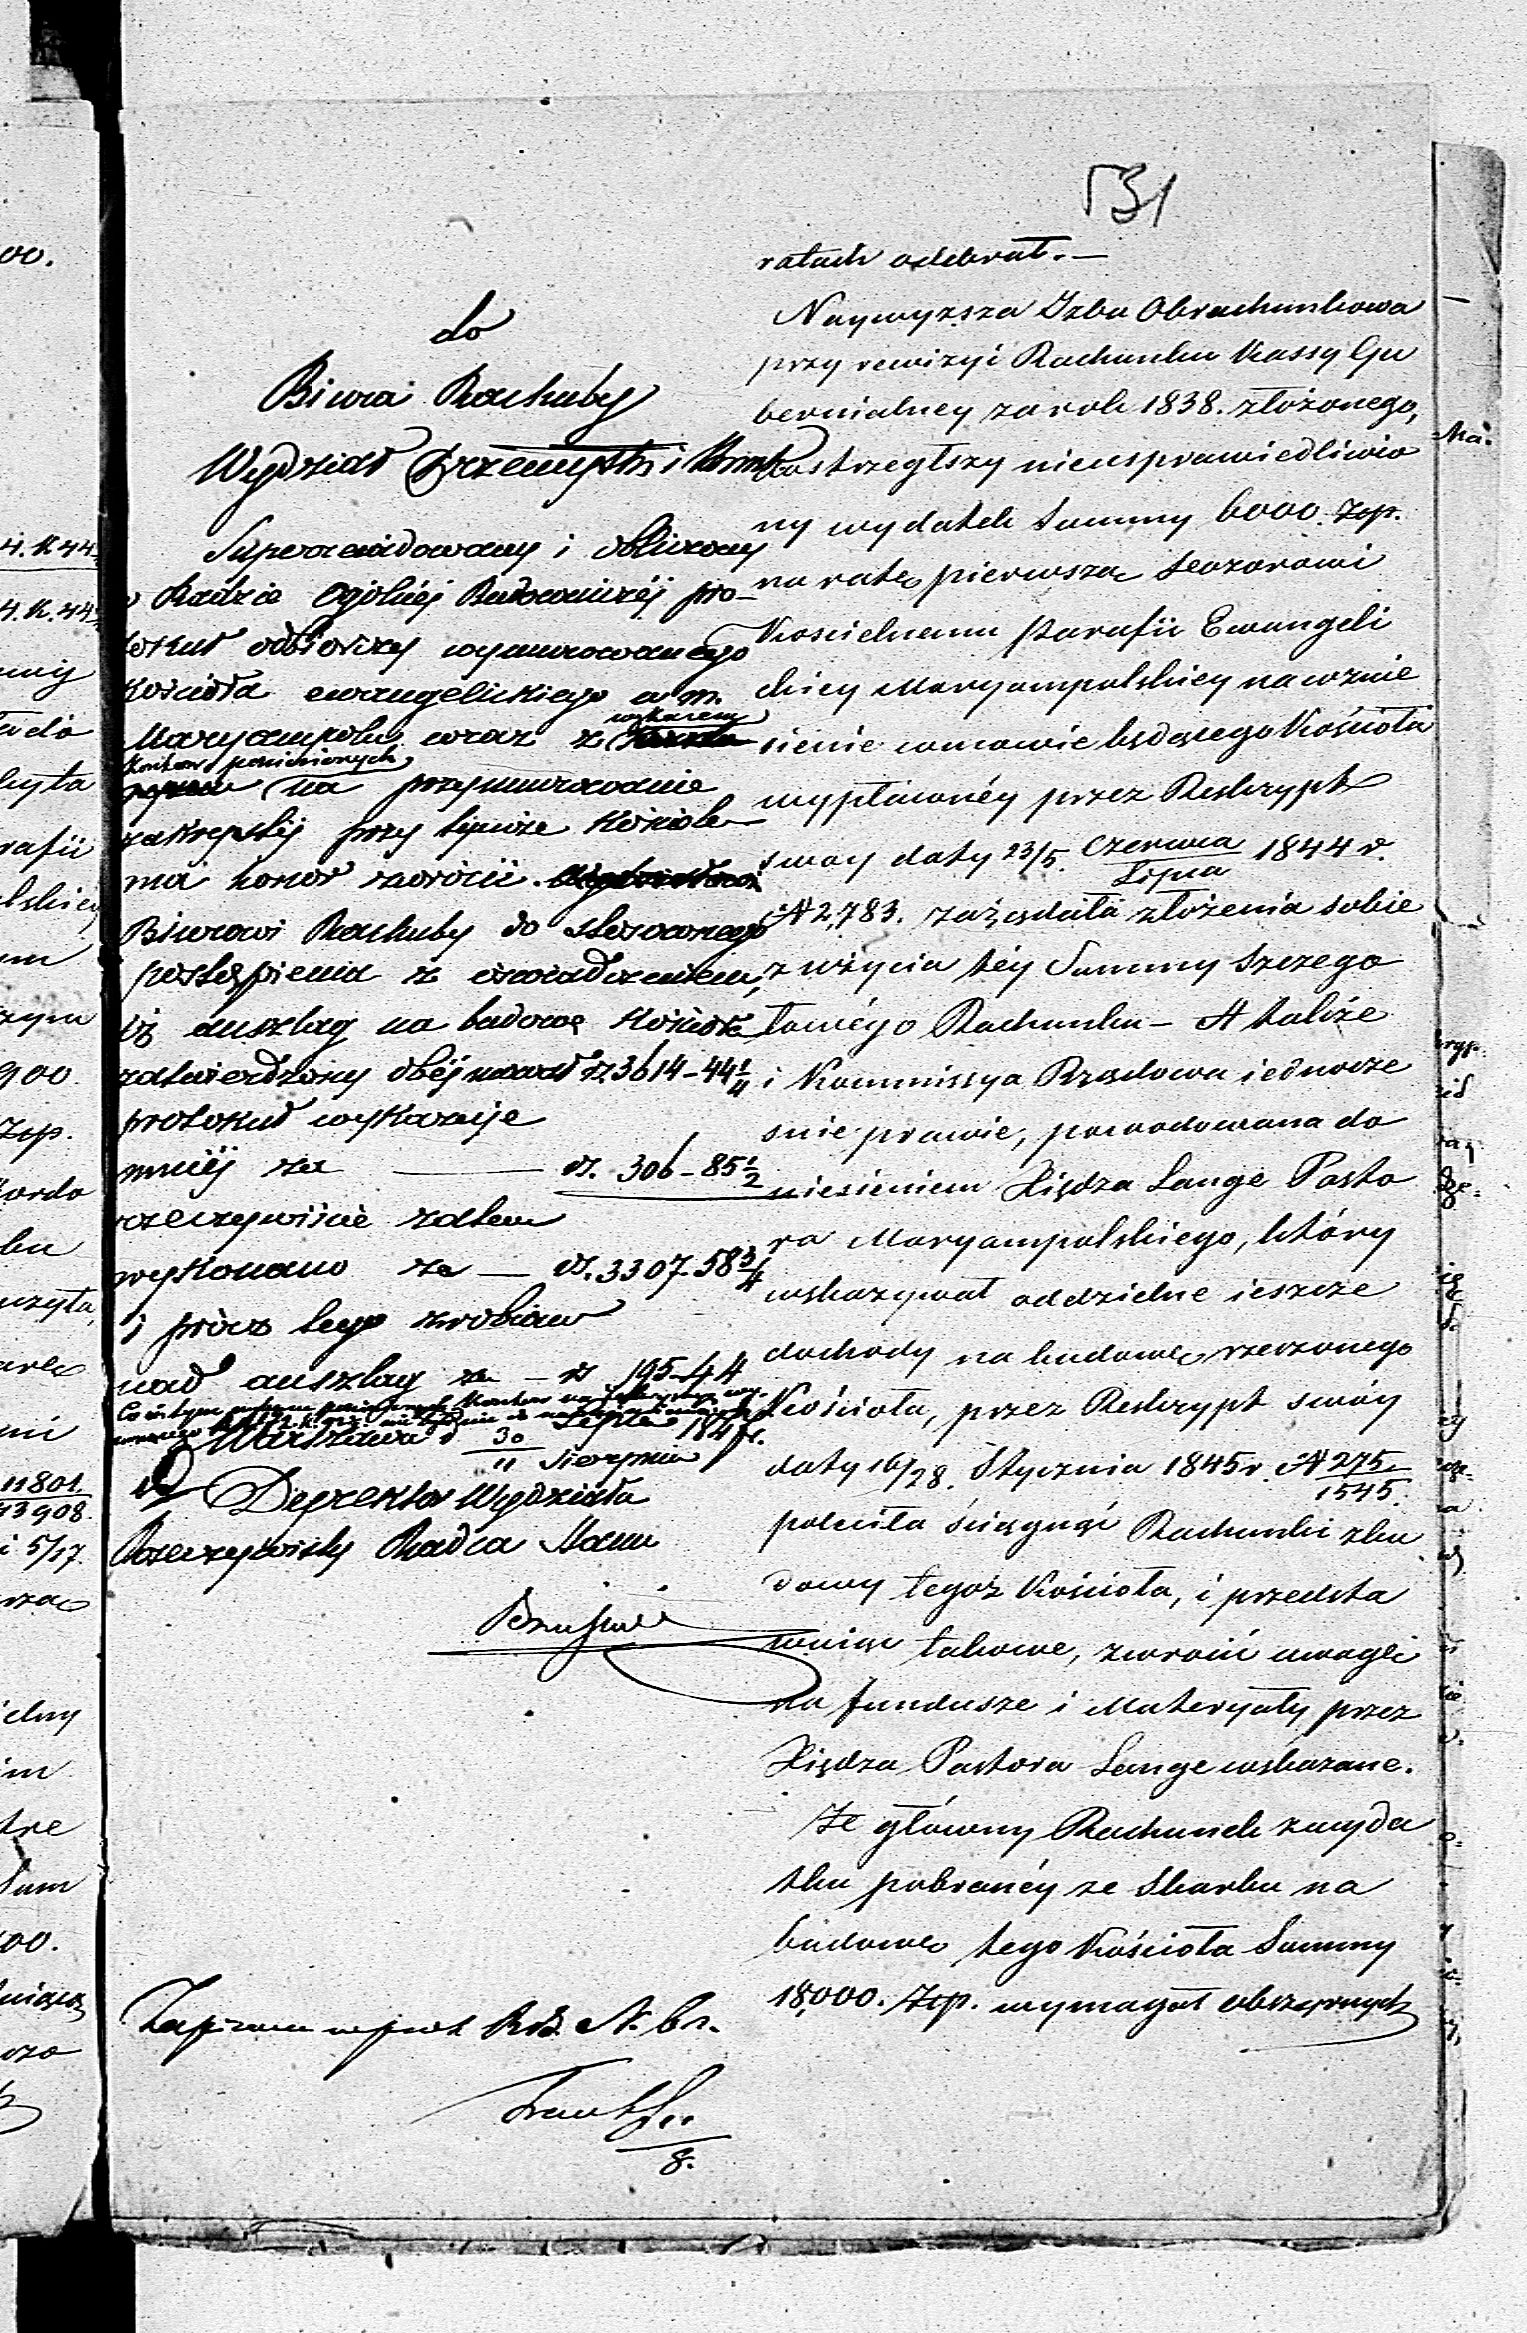 531
do
Biura Rachuby
Wydział Przemysłu i Kunsz
Superrewidowany i obliczony
w Radzie Ogólnéj Budowniczéj pro-
tokuł odbiorczy wymurowanego
Kościoła ewangelickiego w m.
Maryampolu wraz z wykazem
kosztów poniesionych na przymurowanie
zakrystij przy tymże Kościele
ma honor zwrócić
Biurowi Rachuby do stosownego
postąpienia z oświadczeniem,
iż anszlag na budowę Kościoła
zatwierdzony obéjmował rs 3614-44 1/4
protokuł wykazuje
mniéj za — rs. 306-85 1/2
rzeczywiście zatem
wykonano za — rs. 3307.58 3/4
i prócz tego zrobiono
nad anszlag za — rs 195-44
Warszawa d 30 Lipca / 11 Sierpnia 184
Dyrektor Wydziału
Rzeczywisty Radca Stanu
N. 61.
8.
ratach odebrał. —
Naywyższa Izba Obrachunkowa
przy rewizyi Rachunku Kassy Gu
bernialney za rok 1838. złożonego,
dostrzegłszy nieusprawiedliwio
ny wydatek Summy 6000. Złp.
na ratę pierwszą Dozorowi
Kościelnemu Parafii Ewangeli
ckiey Maryampolskiey na wznie
sienie w mowie będącego Kościoła
wypłaconéy przez Reskrypt
swoy daty 23/5. Czerwca / Lipca 1844 r.
N 2,783. zażądała złożenia sobie
z użycia téy Summy Szczegó
łowégo Rachunku — A także
i Kommissya Rządowa iednocze
śnie prawie, powodowana do
niesieniem Xiędza Lange Pasto
ra Maryampolskiego, który
wskazywał oddzielne ieszcze
dochody na budowę rzeczonego
Kościoła, przez Reskrypt swóy
daty 16/28. Stycznia 1845 r. N 275 / 1545.
poleciła ściągnąć Rachunki z bu
dowy tegoż Kościoła, i przedsta
wiaiąc takowe, zwrócić uwagę
na fundusze i Materyały przez
Xiędza Pastora Lange wskazane.
Że główny Rachunek z wyda
tku pobranéy ze Skarbu na
budowę tego Kościoła Summy
18,000. Złp. wymagał obszernych